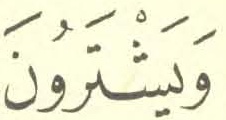 وَيَشْتَرُونَ